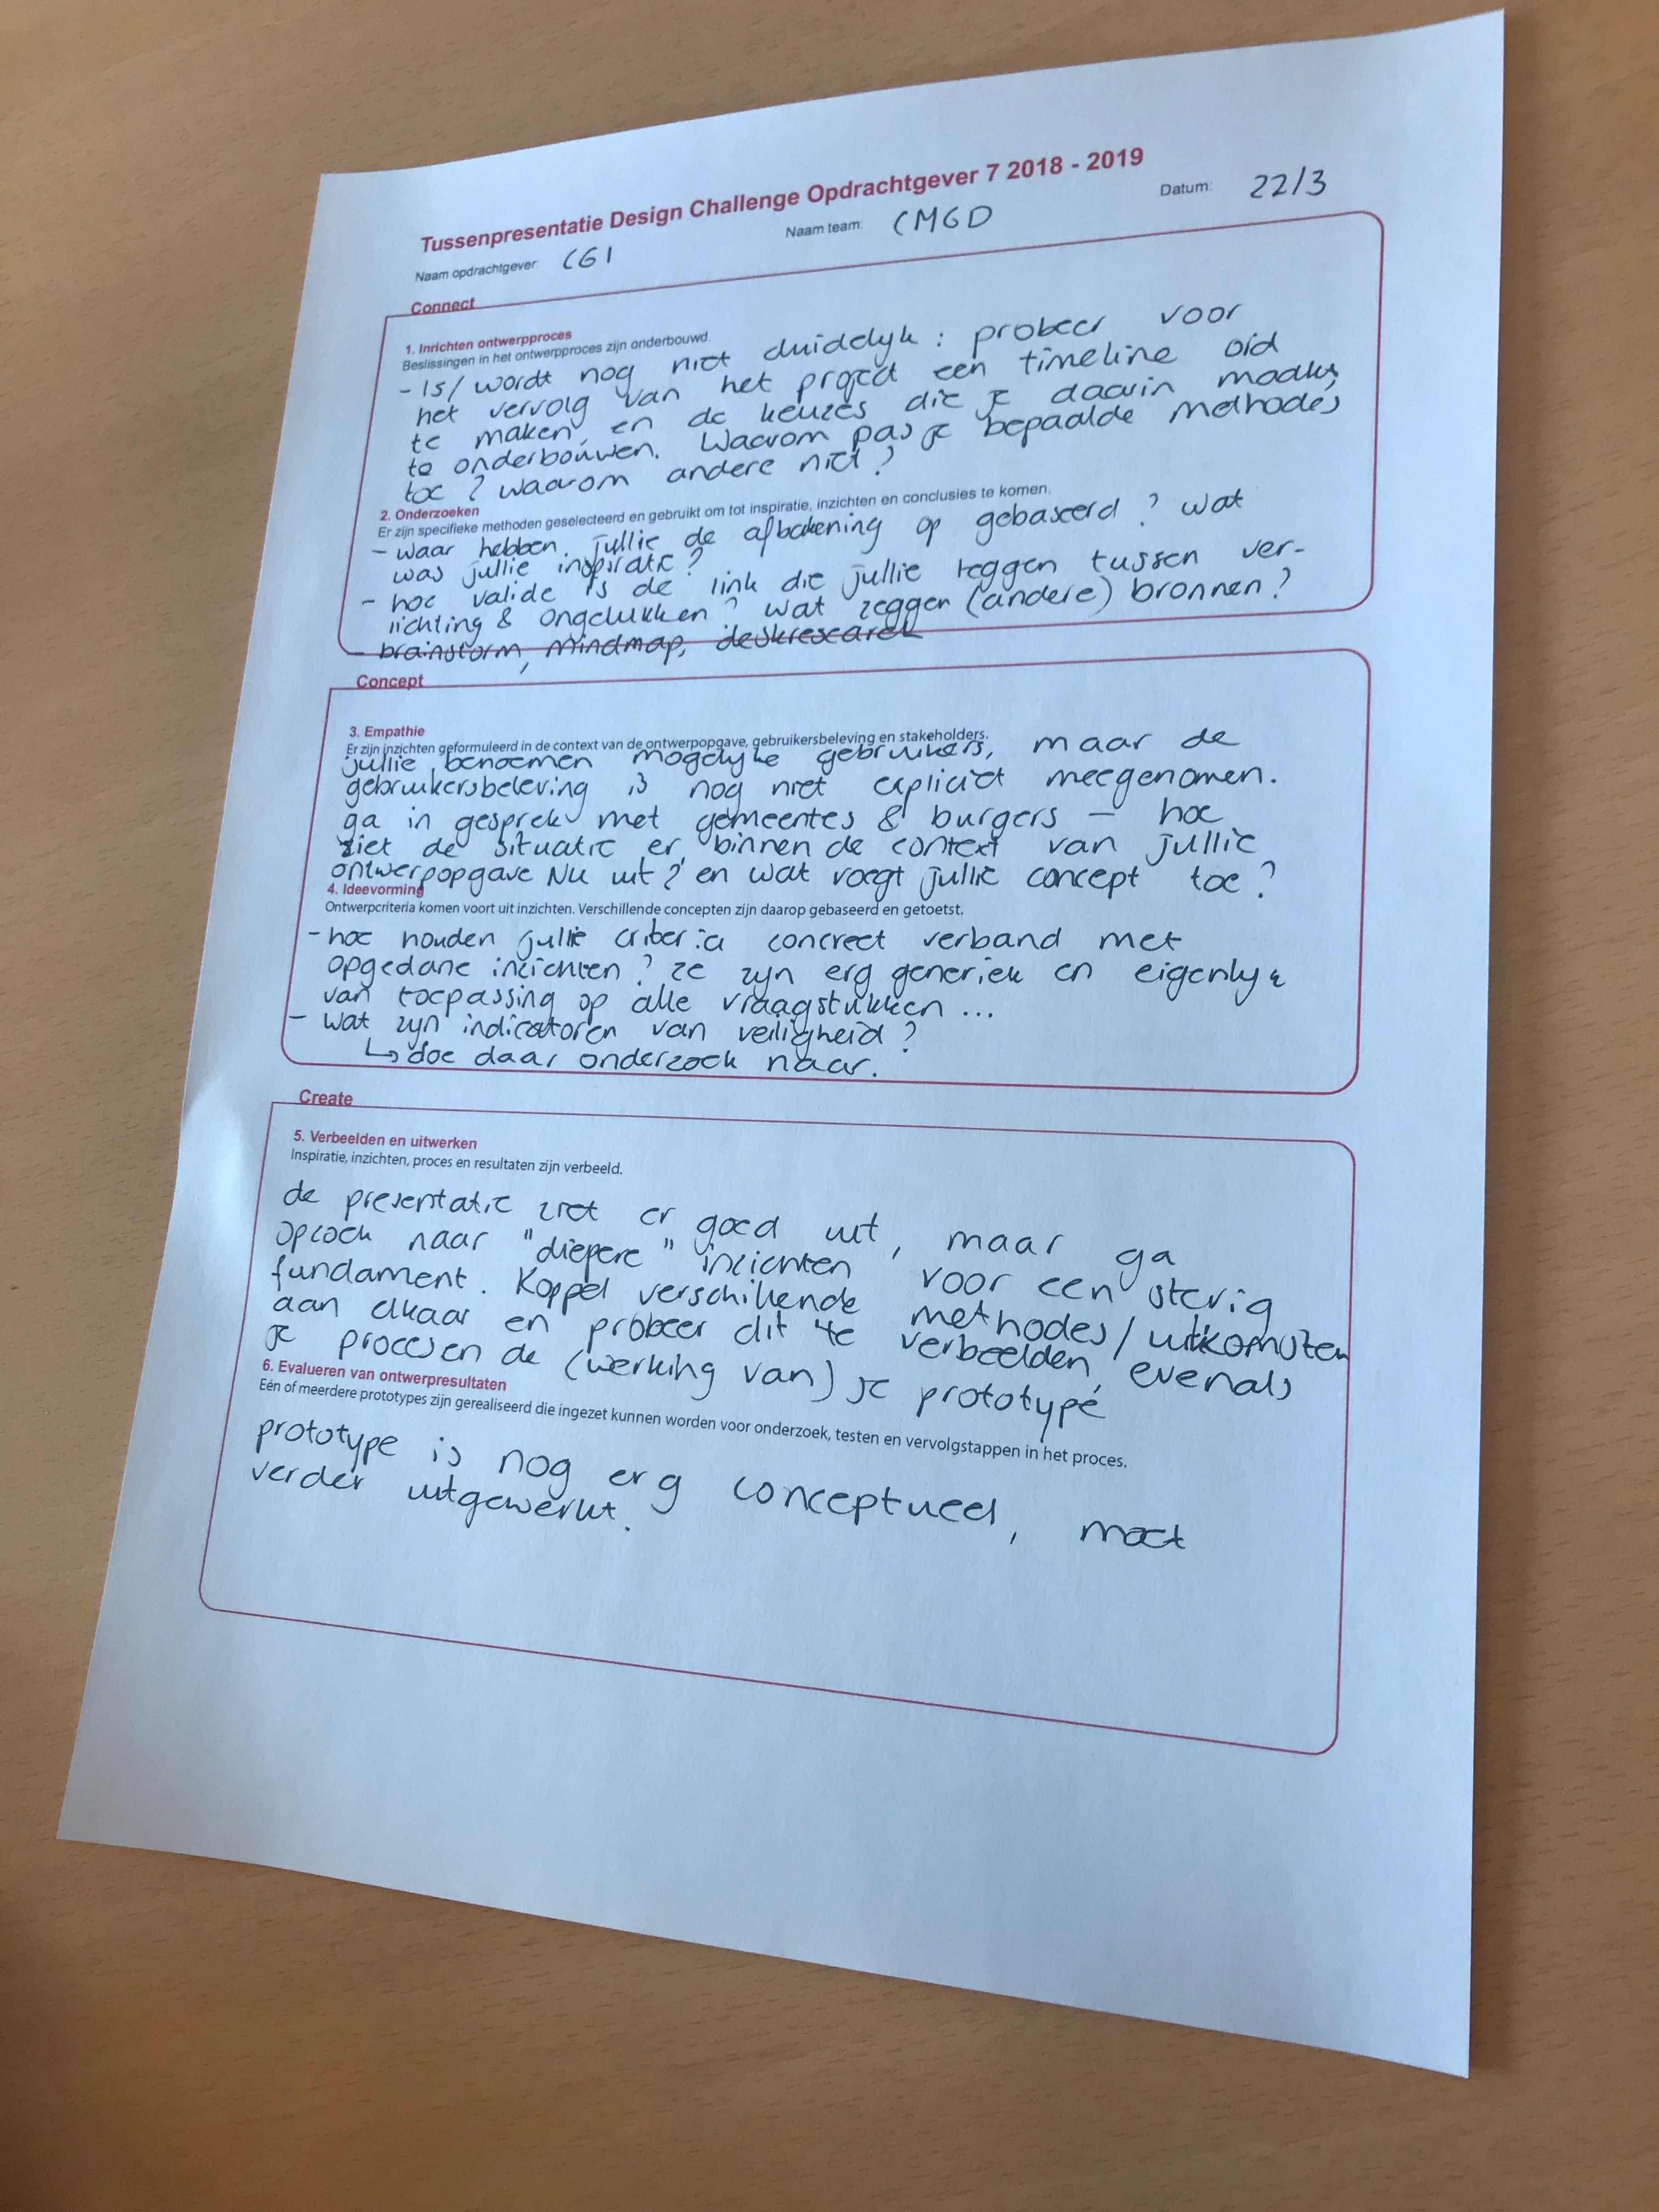 Tussenpresentatie Design Challenge Opdrachtgever 7 2018 - 2019
Naam opdrachtgever: CGI Naam team: CMGD Datum: 22/3
Connect
1. Inrichten ontwerpproces
Beslissingen in het ontwerpproces zijn onderbouwd.
- Is/wordt nog niet duidelyk : probeer voor
het vervolg van het project een timeline oid
te maken, en de keuzes die je daarin maakt,
te onderbouwen. Waarom pas je bepaalde methodes
toe ? waarom andere niet ?
2. Onderzoeken
Er zijn specifieke methoden geselecteerd en gebruikt om tot inspiratie, inzichten en conclusies te komen.
- waar hebben jullie de afbakening op gebaseerd ? wat
was jullie inspiratie ?
- hoe valide is de link die jullie leggen tussen ver-
lichting & ongelukken ? wat zeggen (andere) bronnen ?
- brainstorm, mindmap, deskresearch
Concept
3. Empathie
Er zijn inzichten geformuleerd in de context van de ontwerpopgave, gebruikersbeleving en stakeholders.
jullie benoemen mogelyke gebruikers, maar de
gebruikersbeleving is nog niet expliciet meegenomen.
ga in gesprek met gemeentes & burgers – hoe
ziet de situatie er binnen de context van jullie
ontwerpopgave NU uit ? en wat voegt jullie concept toe ?
4. Ideevorming
Ontwerpcriteria komen voort uit inzichten. Verschillende concepten zijn daarop gebaseerd en getoetst.
- hoe houden jullie criteria concreet verband met
opgedane inzichten ? ze zyn erg generiek en eigenlyk
van toepassing op alle vraagstukken ...
- wat zyn indicatoren van veiligheid ?
↳ doe daar onderzoek naar.
Create
5. Verbeelden en uitwerken
Inspiratie, inzichten, proces en resultaten zijn verbeeld.
de presentatie ziet er goed uit, maar ga
opzoek naar "diepere" inzichten voor een stevig
fundament. Koppel verschillende methodes/uitkomsten
aan elkaar en probeer dit te verbeelden, evenals
je proces en de (werking van) je prototype
6. Evalueren van ontwerpresultaten
Eén of meerdere prototypes zijn gerealiseerd die ingezet kunnen worden voor onderzoek, testen en vervolgstappen in het proces.
prototype is nog erg conceptueel, moet
verder uitgewerkt.